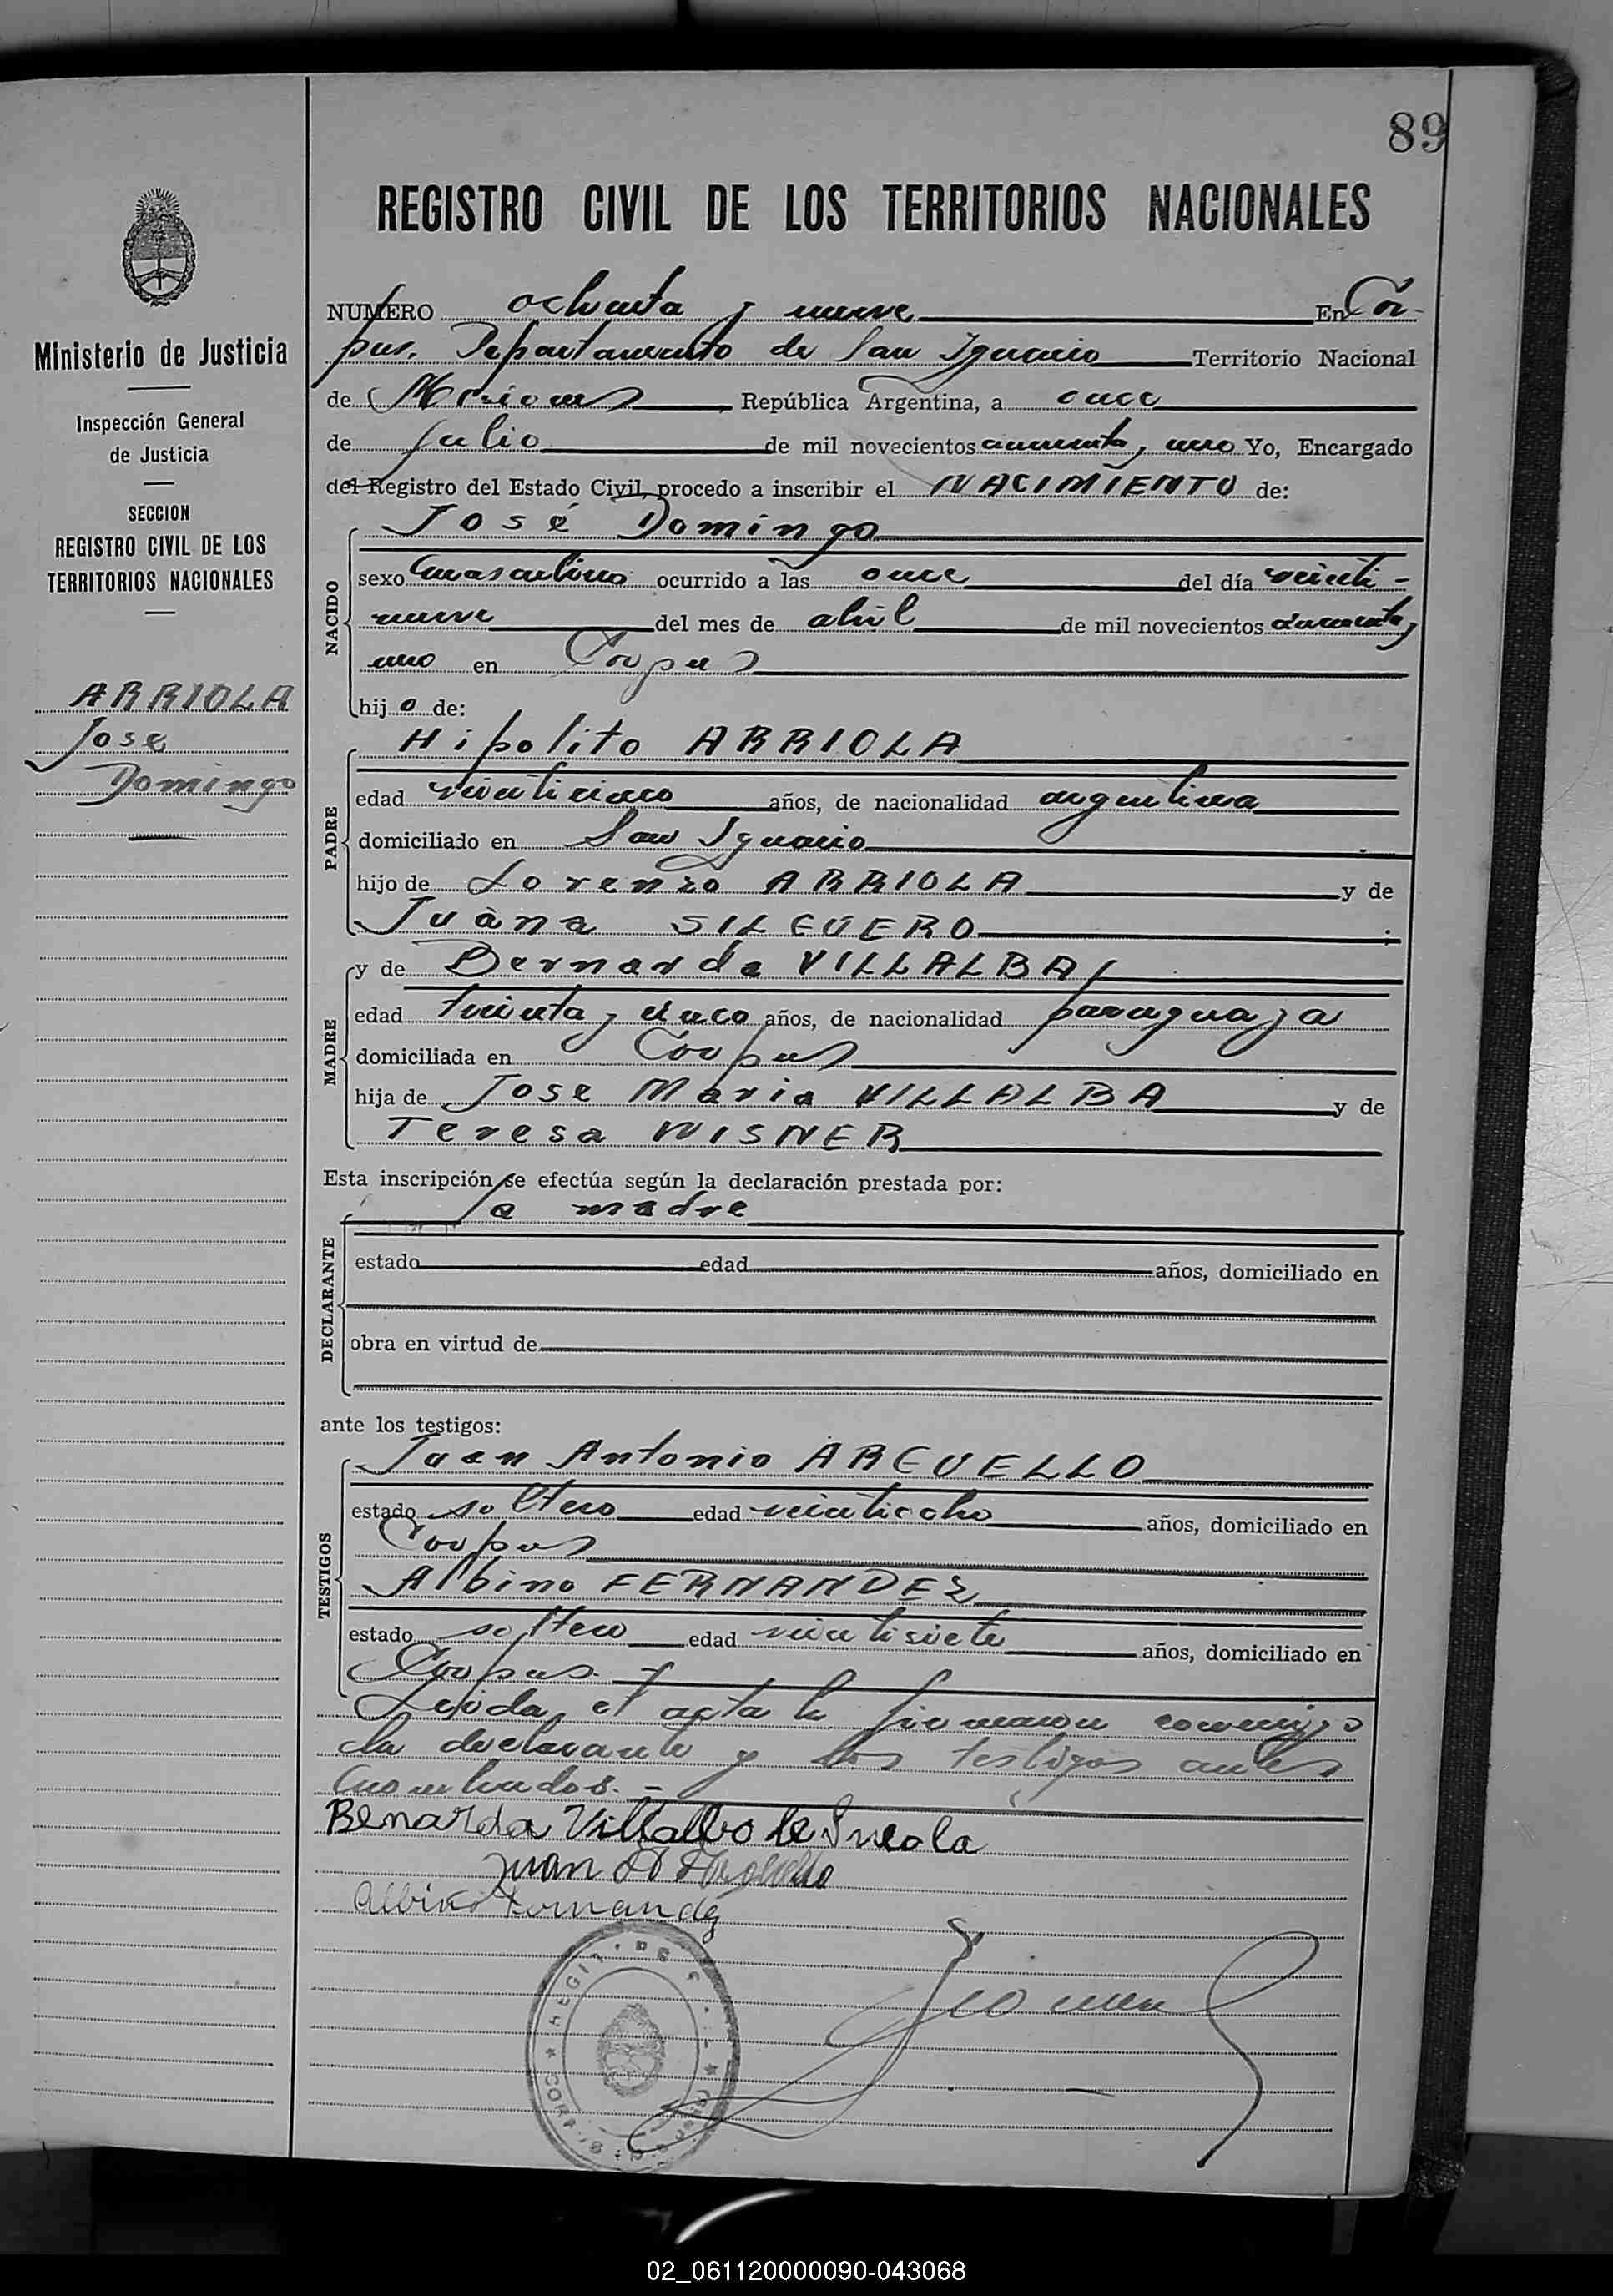 89
REGISTRO CIVIL DE LOS TERRITORIOS NACIONALES
Ministerio de Justicia
Inspección General
de Justicia
SECCION
REGISTRO CIVIL DE LOS
TERRITORIOS NACIONALES
ARRIOLA
Jose
Domingo
NUMERO ochenta y nueve En Cor-
pus, Departamento de San Ignacio Territorio Nacional
de Misiones, República Argentina, a once
de Julio de mil novecientos cuarenta y uno Yo, Encargado
del Registro del Estado Civil, procedo a inscribir el NACIMIENTO de:
NACIDO
José Domingo
sexo masculino ocurrido a las once del día veinti-
nueve del mes de abril de mil novecientos cuarenta y
uno en Corpus
hijo de:
PADRE
Hipolito ARRIOLA
edad veinticinco años, de nacionalidad argentina
domiciliado en San Ignacio
hijo de Lorenzo ARRIOLA y de
Juana SILGUERO;
MADRE
y de Bernarda VILLALBA
edad treinta y cinco años, de nacionalidad paraguaya
domiciliada en Corpus
hija de Jose Maria VILLALBA y de
Teresa WISNER
Esta inscripción se efectúa según la declaración prestada por:
DECLARANTE
la madre
estado edad años, domiciliado en
obra en virtud de
ante los testigos:
TESTIGOS
Juan Antonio ARGUELLO
estado soltero edad veintiocho años, domiciliado en
Corpus
Albino FERNANDEZ
estado soltero edad veintisiete años, domiciliado en
Corpus.-
Leida el acta la firmaron conmigo
la declarante y los testigos antes
nombrados.-
Benarda Villalbo de
Juan A Arguello
Albino Fernandez
02_061120000090-043068